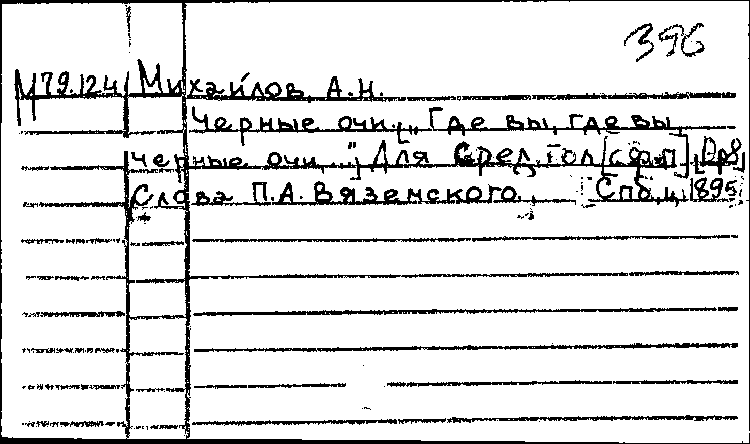 396
М79.124 Михайлов, А.Н.
Черные очи. [„Где вы, где вы,
черные очи,..."] Для сред. гол. [с ф-п]
Слова П.А. Вяземского. Спб., 1895.